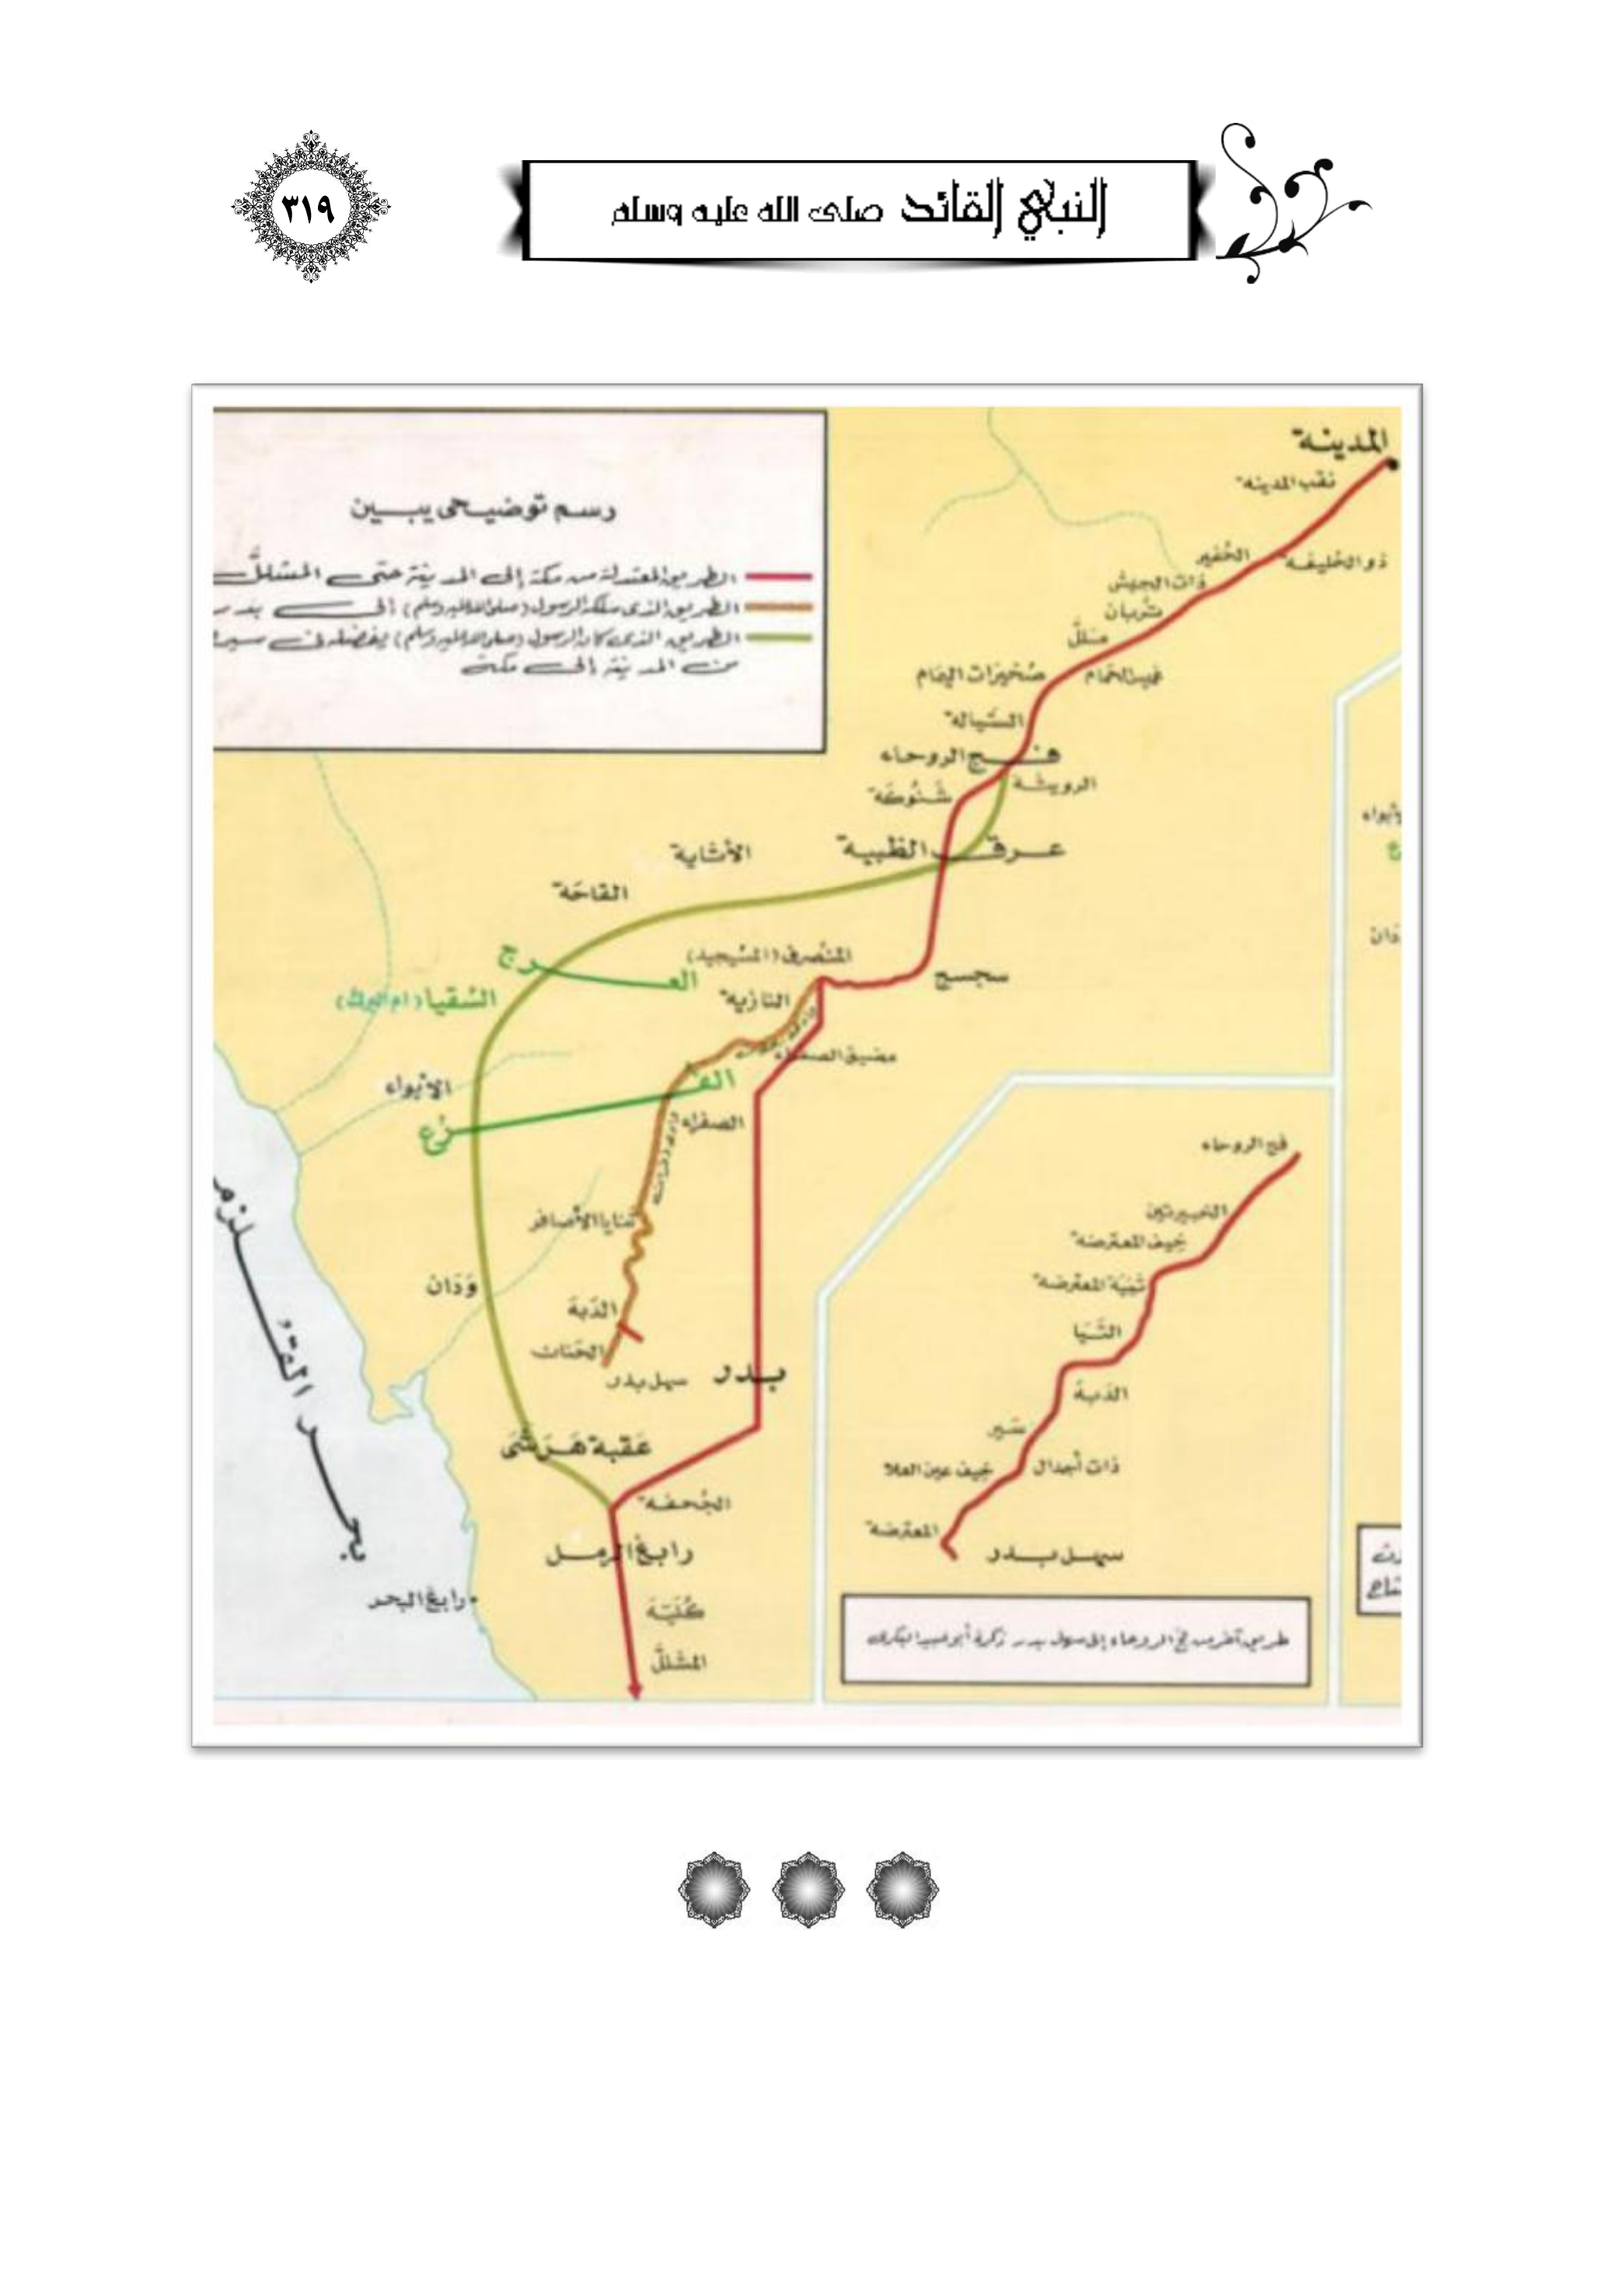 النبي القائد صلى الله عليه وسلم
٣١٩
رسم توضيحي يبين
الطريق المعتدلة من مكة إلى المدينة حتى المشلل
الطريق الذى سلكه الرسول (صلى الله عليه وسلم) إلى بدر
الطريق الذى كان الرسول (صلى الله عليه وسلم) يفضله فى سيره
من المدينة إلى مكة
المدينة
نقب المدينة
ذو الحليفة
الحُفير
ذات الجيش
تُربان
مَلَلّ
غميس الحمام
صُخيرات اليمام
السَّيالة
فج الروحاء
الرويثة
شَنُوكَة
عرق الظبية
الأثاية
القاحَة
العرج
السُقيا (ام البرك)
المنصرف (المسيجيد)
سجسج
النازية
مضيق الصفراء
الأبواء
الفرع
الصفراء
وادى ذفران
ثنايا الأصافر
وَدَان
الدَبة
الحَنان
سهل بدر
بدر
عَقَبة هَرشَى
الجُحفة
رابغ الرمل
رابغ البحر
كُلَيَّة
المشلَلّ
بحر القلزم
فج الروحاء
الخبيرتين
خيف المعترضة
ثَنِيَّة المعترضة
الدَبة
سَير
ذات أجدال
خيف عين العلا
المعترضة
سهل بدر
طريق آخر من فج الروحاء إلى سهل بدر ذكره أبو عبيد البكرى